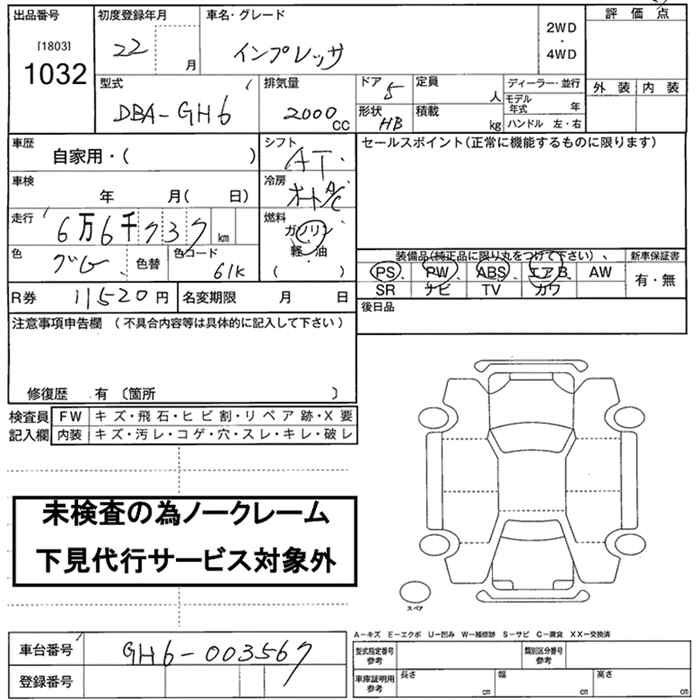 出品番号
[1803]
1032
初度登録年月
22 月
車名・グレード
インプレッサ
2WD
・
4WD
評価点
外装 内装
型式
DBA-GH6
排気量
2000 CC
ドア 5
形状 HB
定員 人
積載 kg
ディーラー・並行
モデル年式 年
ハンドル 左・右
車歴
自家用・( )
車検
年 月( 日)
走行
6万6千737 km
色
グレ
色替
色コード
61K
シフト
AT
冷房
オートA/C
燃料
ガソリン
軽・油
( )
セールスポイント(正常に機能するものに限ります)
装備品(純正品に限り丸をつけて下さい)
PS PW ABS エアB AW
SR ナビ TV カワ
新車保証書
有・無
R券 11520円
名変期限 月 日
後日品
注意事項申告欄 (不具合内容等は具体的に記入して下さい)
修復歴 有 〔箇所 〕
検査員
記入欄
FW キズ・飛石・ヒビ割・リペア跡・X要
内装 キズ・汚レ・コゲ・穴・スレ・キレ・破レ
未検査の為ノークレーム
下見代行サービス対象外
スペア
A-キズ E-エクボ U-凹み W-補修跡 S-サビ C-腐食 XX-交換済
車台番号 GH6-003567
登録番号
型式指定番号
参考
類別区分番号
参考
車庫証明用
参考
長さ cm
幅 cm
高さ cm